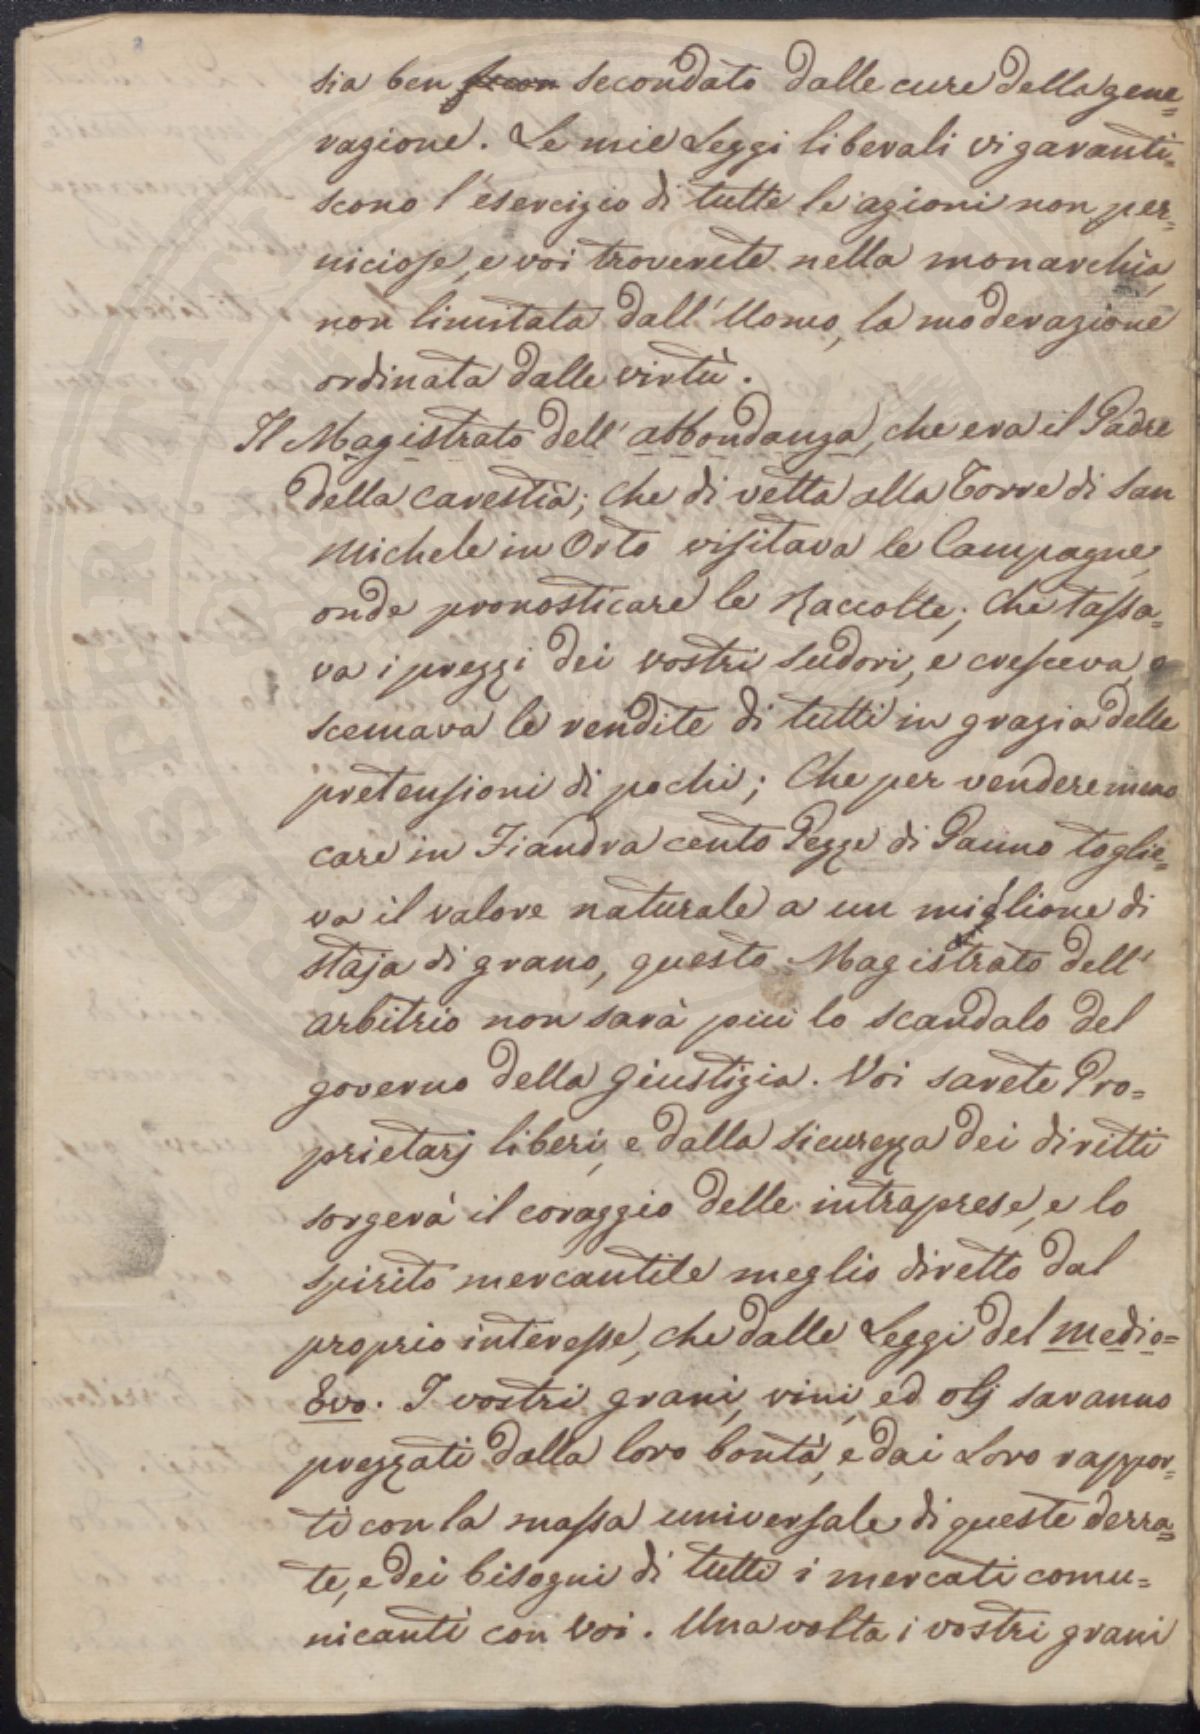 sia ben secon secondato dalle cure della gene=
razione. Le mie Leggi liberali vi garanti=
scono l'esercizio di tutte le azioni non per=
niciose, e voi troverete nella monarchia,
non limitata dall'Uomo, la moderazione
ordinata dalle virtù.
Il Magistrato dell'abbondanza, che era il Padre
della carestia; che di vetta alla Torre di San
Michele in Orto visitava le Campagne,
onde pronosticare le Raccolte; Che tassa=
va i prezzi dei vostri sudori, e cresceva, e
scemava le vendite di tutti in grazia delle
pretensioni di pochi; Che per vendere meno
care in Fiandra cento Pezze di Panno toglie=
va il valore naturale a un miglione di
staja di grano, questo Magistrato dell'
arbitrio non sarà più lo scandalo del
governo della giustizia. Voi sarete Pro=
prietarj liberi, e dalla sicurezza dei diritti
sorgerà il coraggio delle intraprese, e lo
spirito mercantile meglio diretto dal
proprio interesse, che dalle Leggi del medio=
Evo. I vostri grani, vini, ed olj saranno
prezzati dalla loro bontà, e dai Loro rappor=
ti con la massa universale di queste derra=
te, e dei bisogni di tutti i mercati comu=
nicanti con Voi. Una volta i vostri grani